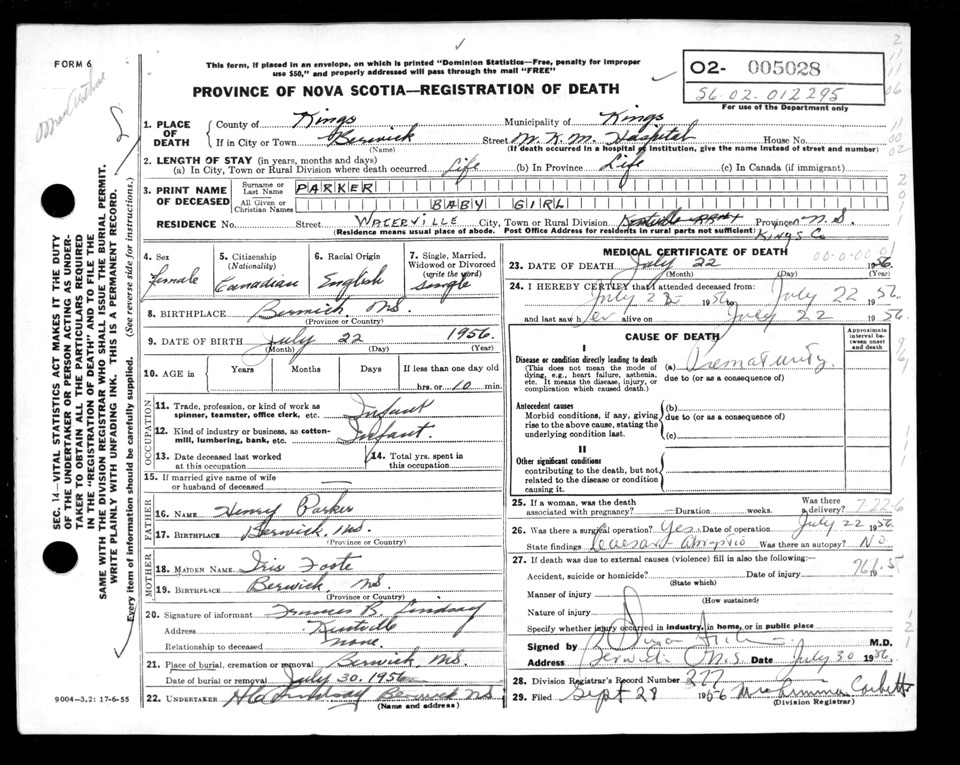 FORM 6
This form, if placed in an envelope, on which is printed "Dominion Statistics—Free, penalty for improper
use $50," and properly addressed will pass through the mail "FREE"
PROVINCE OF NOVA SCOTIA—REGISTRATION OF DEATH
O2- 005028
56-02-012295
For use of the Department only
SEC. 14—VITAL STATISTICS ACT MAKES IT THE DUTY
OF THE UNDERTAKER OR PERSON ACTING AS UNDER-
TAKER TO OBTAIN ALL THE PARTICULARS REQUIRED
IN THE "REGISTRATION OF DEATH" AND TO FILE THE
SAME WITH THE DIVISION REGISTRAR WHO SHALL ISSUE THE BURIAL PERMIT.
WRITE PLAINLY WITH UNFADING INK. THIS IS A PERMANENT RECORD.
Every item of information should be carefully supplied. (See reverse side for instructions.)
1. PLACE OF DEATH
County of Kings Municipality of Kings
If in City or Town Berwick Street W. K. M. Hospital House No.
(Name) (If death occurred in a hospital or institution, give the name instead of street and number)
2. LENGTH OF STAY (in years, months and days)
(a) In City, Town or Rural Division where death occurred Life (b) In Province Life (c) In Canada (if immigrant)
3. PRINT NAME OF DECEASED
Surname or Last Name PARKER
All Given or Christian Names BABY GIRL
RESIDENCE No. Street WATERVILLE City, Town or Rural Division Province N.S
(Residence means usual place of abode. Post Office Address for residents in rural parts not sufficient) KINGS CO
4. Sex
Female
5. Citizenship (Nationality)
Canadian
6. Racial Origin
English
7. Single, Married, Widowed or Divorced (write the word)
Single
8. BIRTHPLACE Berwick, NS
(Province or Country)
9. DATE OF BIRTH July 22 1956
(Month) (Day) (Year)
10. AGE in Years Months Days If less than one day old
hrs. or 10 min.
OCCUPATION
11. Trade, profession, or kind of work as spinner, teamster, office clerk, etc. Infant
12. Kind of industry or business, as cotton-mill, lumbering, bank, etc. Infant.
13. Date deceased last worked at this occupation
14. Total yrs. spent in this occupation
15. If married give name of wife or husband of deceased —
FATHER
16. NAME Henry Parker
17. BIRTHPLACE Berwick, NS.
(Province or Country)
MOTHER
18. MAIDEN NAME Iris Foote
19. BIRTHPLACE Berwick, NS
(Province or Country)
20. Signature of informant Francis B. Lindsay
Address Kentville
Relationship to deceased none
21. Place of burial, cremation or removal Berwick, NS.
Date of burial or removal July 30, 1956
22. UNDERTAKER Lindsay Berwick NS
(Name and address)
9004—3.2: 17-6-55
MEDICAL CERTIFICATE OF DEATH
23. DATE OF DEATH July 22 1956.
(Month) (Day) (Year)
24. I HEREBY CERTIFY that I attended deceased from:
July 22 1956 to July 22 1956.
and last saw her alive on July 22 1956.
CAUSE OF DEATH
Approximate interval between onset and death
I
Disease or condition directly leading to death
(This does not mean the mode of dying, e.g., heart failure, asthenia, etc. It means the disease, injury, or complication which caused death.)
(a) Prematurity
due to (or as a consequence of)
Antecedent causes
Morbid conditions, if any, giving rise to the above cause, stating the underlying condition last.
(b)
due to (or as a consequence of)
(c)
II
Other significant conditions
contributing to the death, but not related to the disease or condition causing it.
25. If a woman, was the death associated with pregnancy? —Duration weeks. Was there a delivery? 7226
26. Was there a surgical operation? Yes Date of operation July 22 1956.
State findings Caesar - Abruptio Was there an autopsy? No
27. If death was due to external causes (violence) fill in also the following:—
Accident, suicide or homicide? Date of injury 19
(State which)
Manner of injury
(How sustained)
Nature of injury
Specify whether injury occurred in industry, in home, or in public place
Signed by M.D.
Address Berwick N.S. Date July 30 1956.
28. Division Registrar's Record Number 277
29. Filed Sept 28 1956 Mrs Corbett
(Division Registrar)